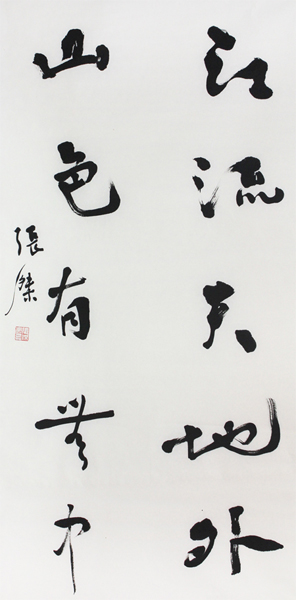 江流天地外
山色有无中
張傑